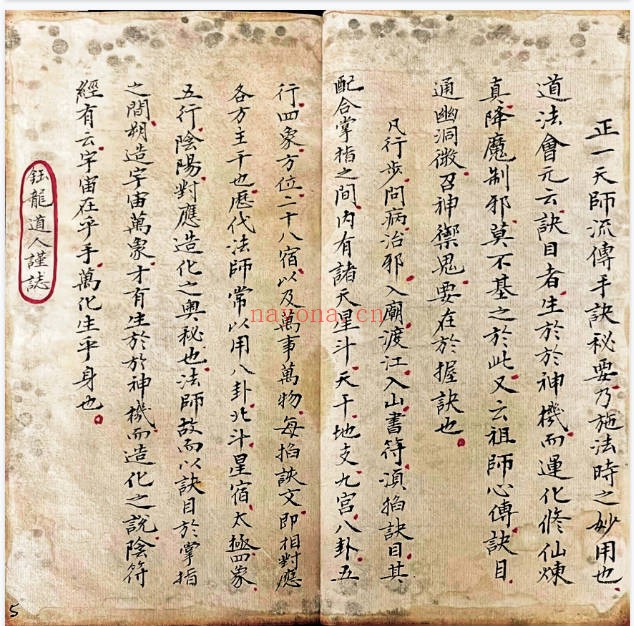 正一天師流傳手訣秘要乃施法時之妙用也
道法會元云訣目者生於於神機而運化修仙煉
真降魔制邪莫不基之於此又云祖師心傳訣目
通幽洞微召神禦鬼要在於握訣也
凡行步問病治邪入廟渡江入山書符須掐訣目其
配合掌指之間內有諸天星斗天干地支九宮八卦五
行四象方位二十八宿以及萬事萬物每掐訣文即相對應
各方主干也歷代法師常以用八卦北斗星宿太極四象
五行陰陽對應造化之奧秘也法師故而以訣目於掌指
之間朔造宇宙萬象才有生於於神機而造化之說陰符
經有云宇宙在乎手萬化生乎身也
鈺龍道人謹誌
nayona.cn
5